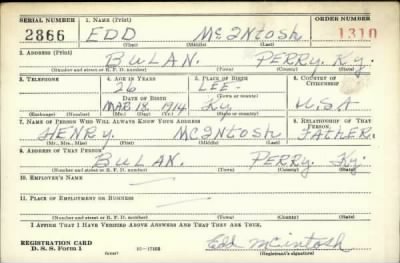 SERIAL NUMBER 1. NAME (Print) ORDER NUMBER
2866 EDD McINtosh 1310
(First) (Middle) (Last)
2. ADDRESS (Print)
BULAN. PERRY. Ky.
(Number and street or R. F. D. number) (Town) (County) (State)
3. TELEPHONE 4. AGE IN YEARS 5. PLACE OF BIRTH 6. COUNTRY OF CITIZENSHIP
26 LEE-
DATE OF BIRTH (Town or county)
MAR 18. 1914 Ky U.S.A
(Exchange) (Number) (Mo.) (Day) (Yr.) (State or country)
7. NAME OF PERSON WHO WILL ALWAYS KNOW YOUR ADDRESS 8. RELATIONSHIP OF THAT PERSON
HENRY. McINtosh FATHER.
(Mr., Mrs., Miss) (First) (Middle) (Last)
9. ADDRESS OF THAT PERSON
BULAN. PERRY. Ky.
(Number and street or R. F. D. number) (Town) (County) (State)
10. EMPLOYER'S NAME
11. PLACE OF EMPLOYMENT OR BUSINESS
(Number and street or R. F. D. number) (Town) (County) (State)
I AFFIRM THAT I HAVE VERIFIED ABOVE ANSWERS AND THAT THEY ARE TRUE.
REGISTRATION CARD
D. S. S. Form 1 16-17105 Edd McIntosh
(Registrant's signature)